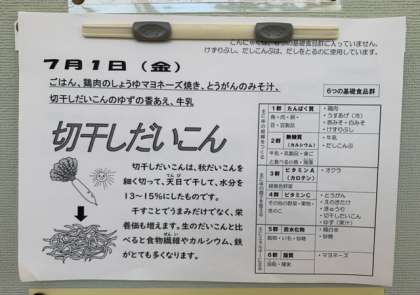 だしこんぶは、だしをとるのに使用しています。
７月１日（金）
ごはん、鶏肉のしょうゆマヨネーズ焼き、とうがんのみそ汁、
切干しだいこんのゆずの香あえ、牛乳
切干しだいこん
切干しだいこんは、秋だいこんを
細く切って、天日で干して、水分を
13～15％にしたものです。
干すことでうまみだけでなく、栄
養価も増えます。生のだいこんと比
べると食物繊維やカルシウム、鉄
がとても多くなります。
6つの基礎食品群
1群 たんぱく質
魚・肉・卵・
豆・豆製品
・鶏肉
・うすあげ（冷）
・赤みそ・白みそ
・けずりぶし
2群 無機質
（カルシウム）
牛乳・乳製品・骨ご
と食べる小魚・海藻
・牛乳
・だしこんぶ
3群 ビタミンA
（カロテン）
緑黄色野菜
・オクラ
4群 ビタミンC
その他の野菜・果物・
きのこ
・とうがん
・えのきたけ
・きゅうり
・切干しだいこん
・ゆず（果汁）
5群 炭水化物
穀類・いも・砂糖
・精白米
・砂糖
6群 脂質
油脂・種実
・マヨネーズ